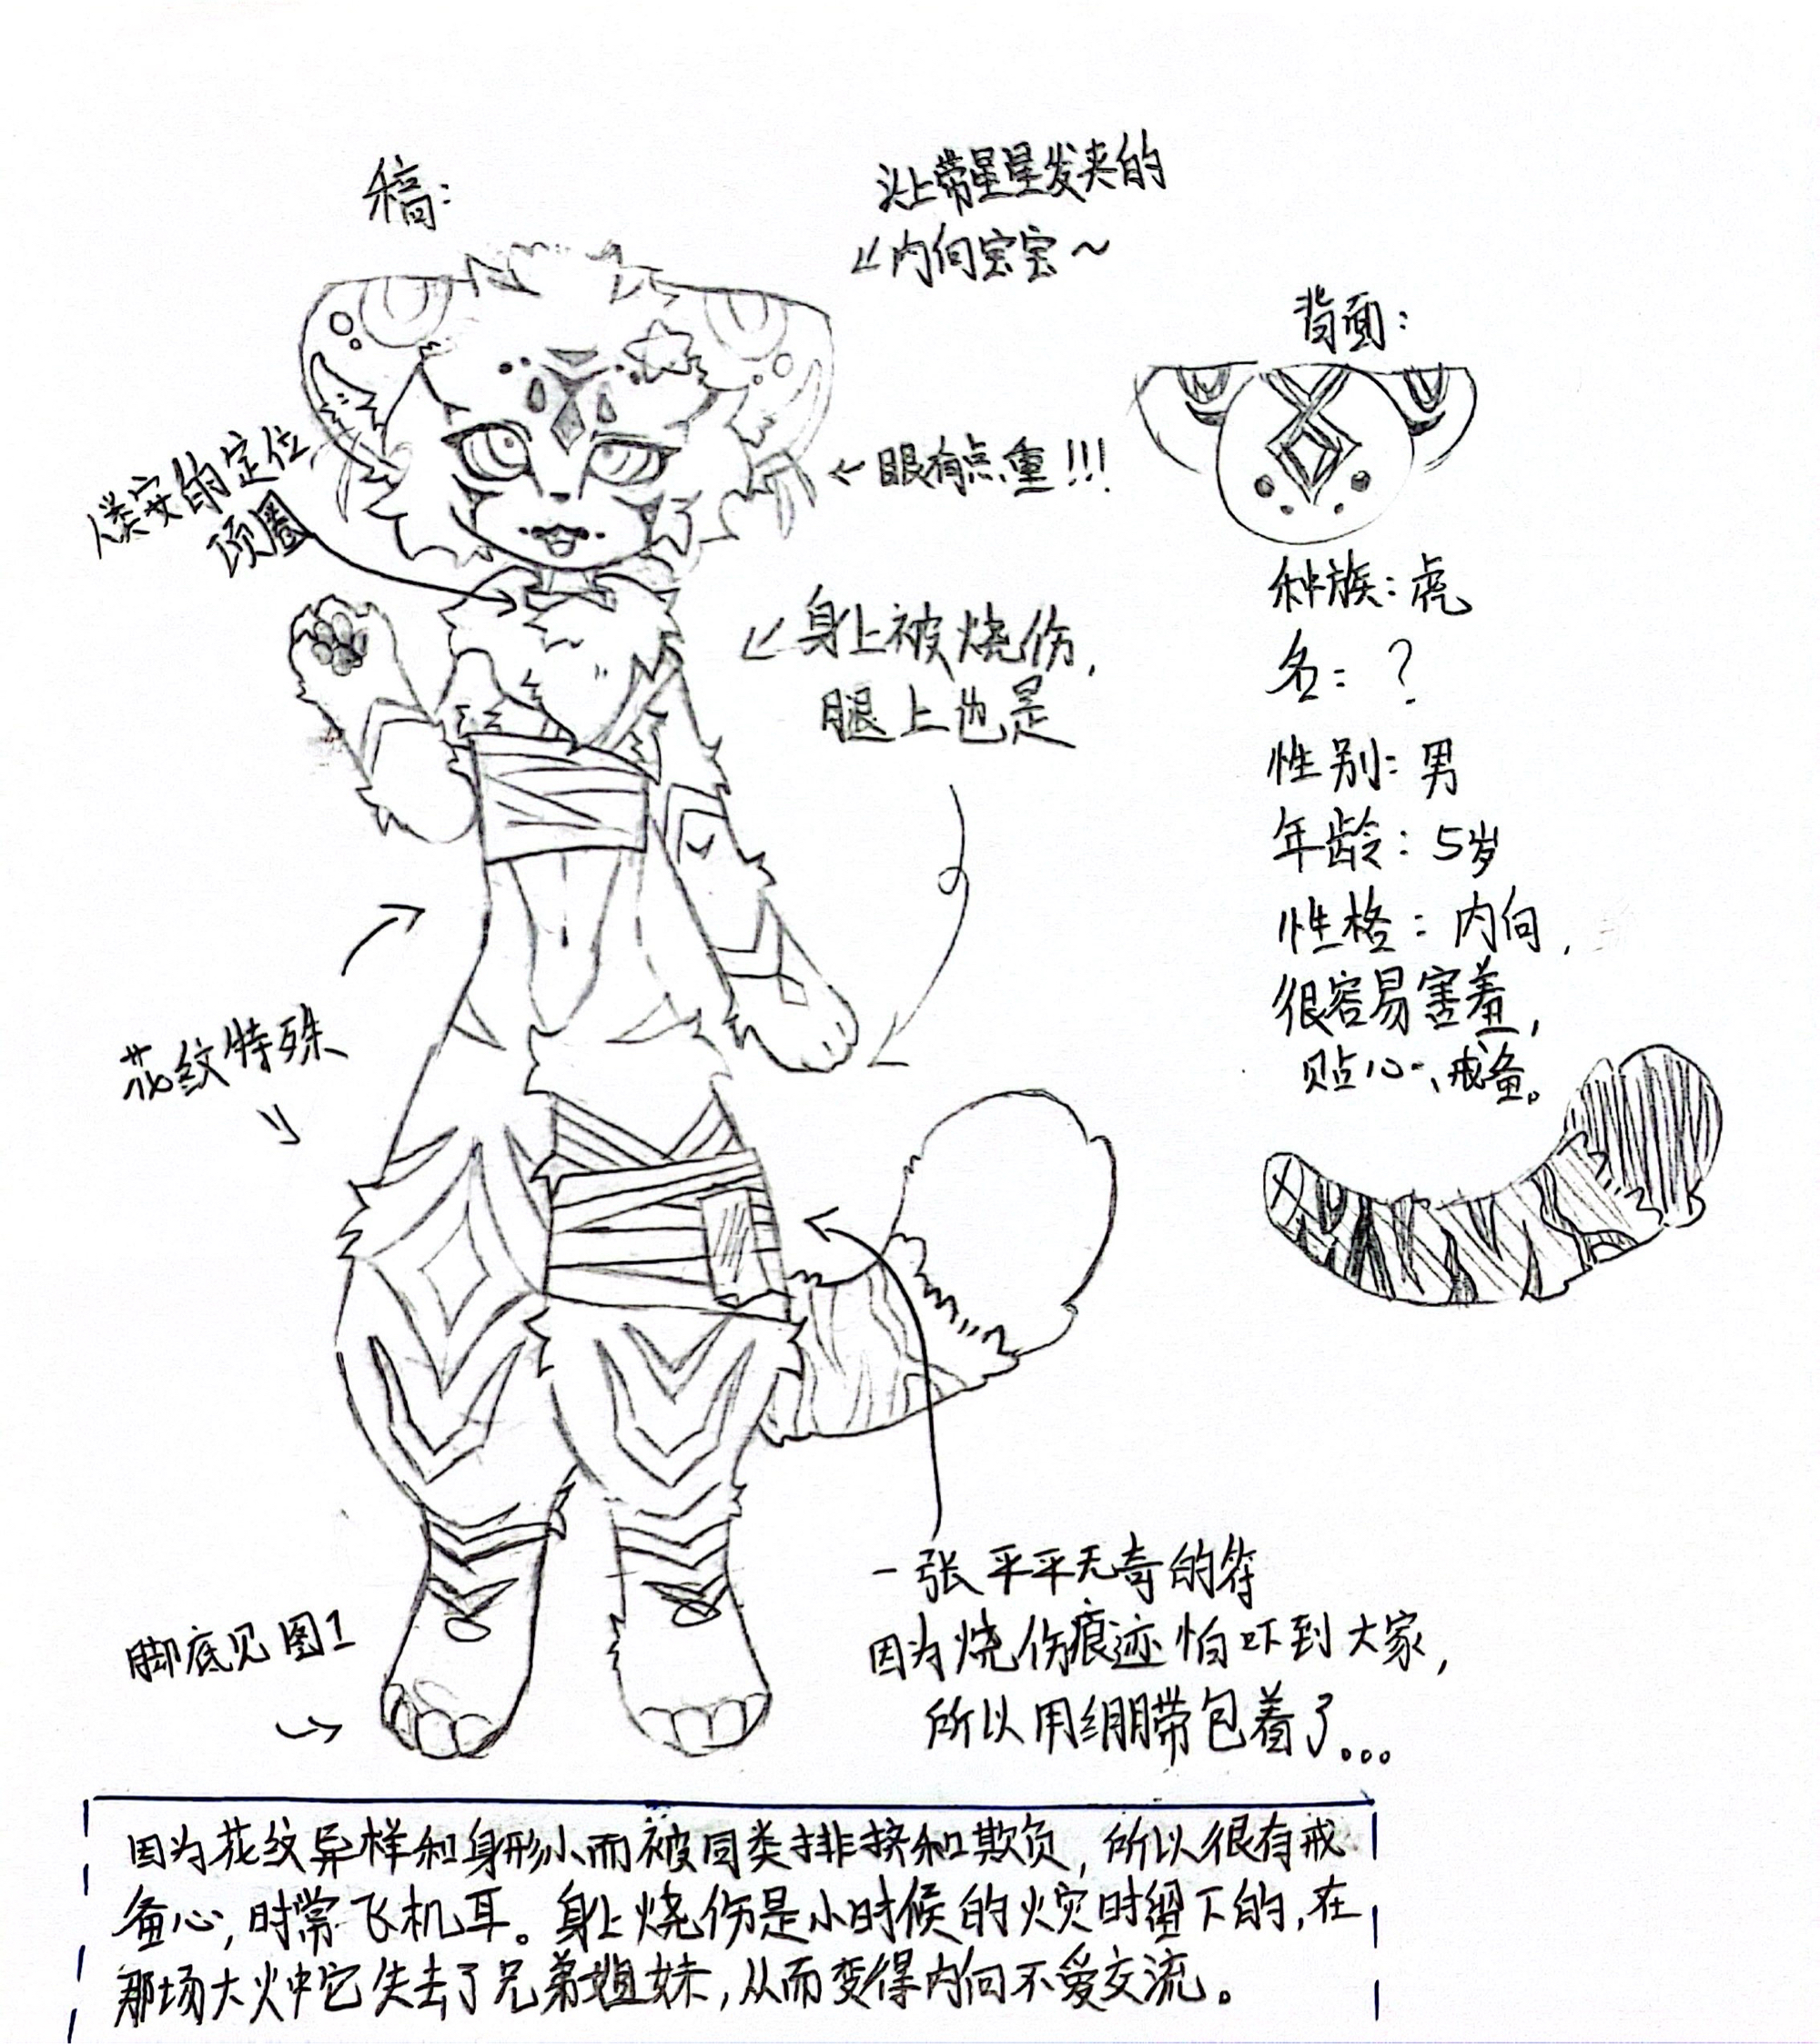 稿:
头上带星星发夹的
内向宝宝~
背面:
人类安的定位
项圈
眼有点重!!!
身上被烧伤,
腿上也是
种族:虎
名:?
性别:男
年龄:5岁
性格:内向,
很容易害羞,
贴心、戒备。
花纹特殊
一张平平无奇的符
因为烧伤痕迹怕吓到大家,
所以用绷带包着了...
脚底见图1
因为花纹异样和身形小而被同类排挤和欺负,所以很有戒
备心,时常飞机耳。身上烧伤是小时候的火灾时留下的,在
那场大火中它失去了兄弟姐妹,从而变得内向不爱交流。